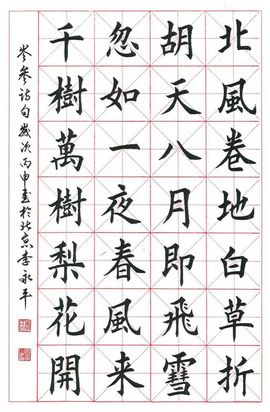 北風卷地白草折
胡天八月即飛雪
忽如一夜春風来
千樹萬樹梨花開
岑參詩句歲次丙申書於北京李永平